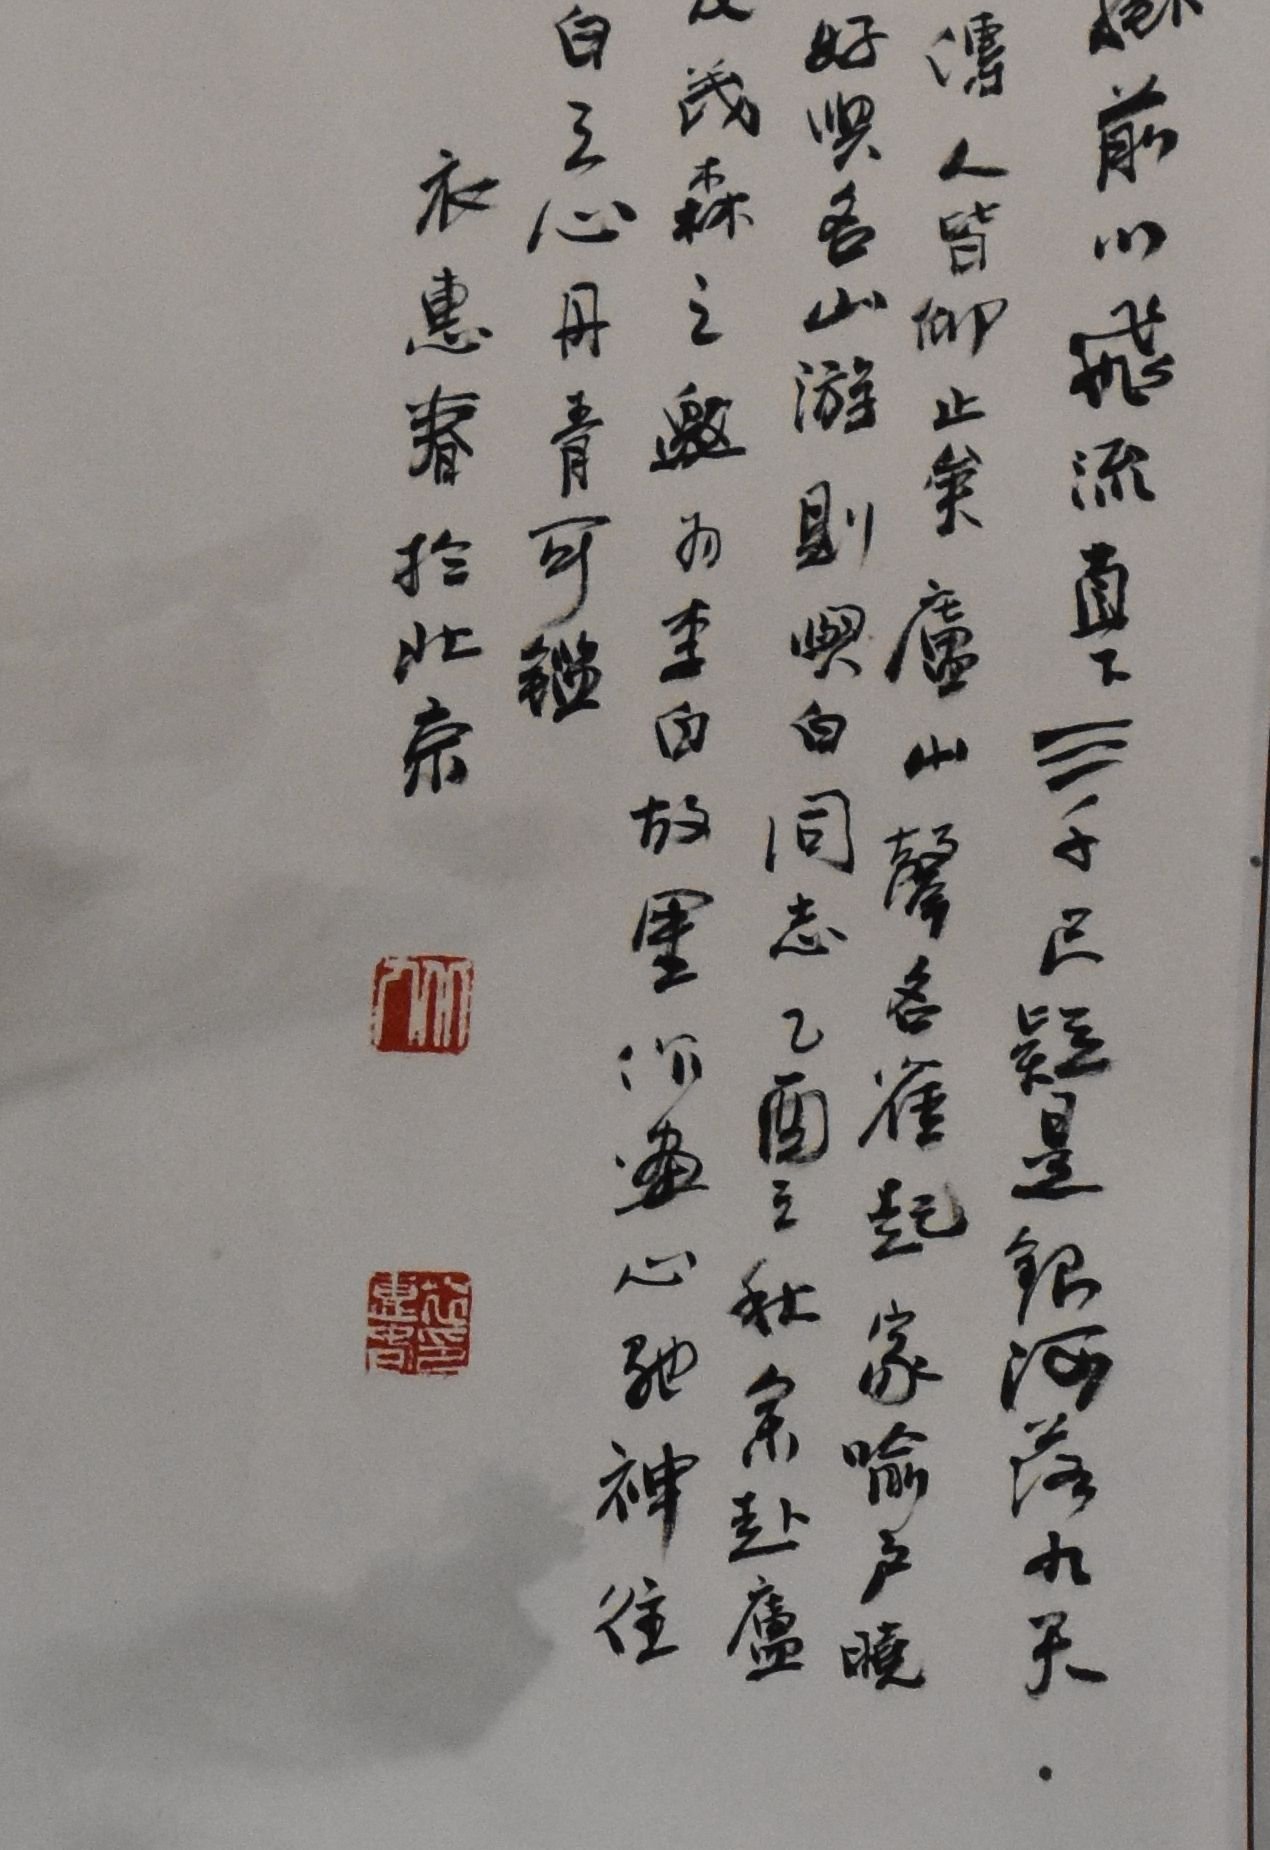 前川飛流直下三千尺疑是銀河落九天
傳人皆仰止矣廬山聲名崔起家喻戶曉
好與名山游則與白同志乙酉之秋余赴廬
茂森之邀为李白故里作畫心馳神往
白之心丹青可鑑
衣惠春於北京